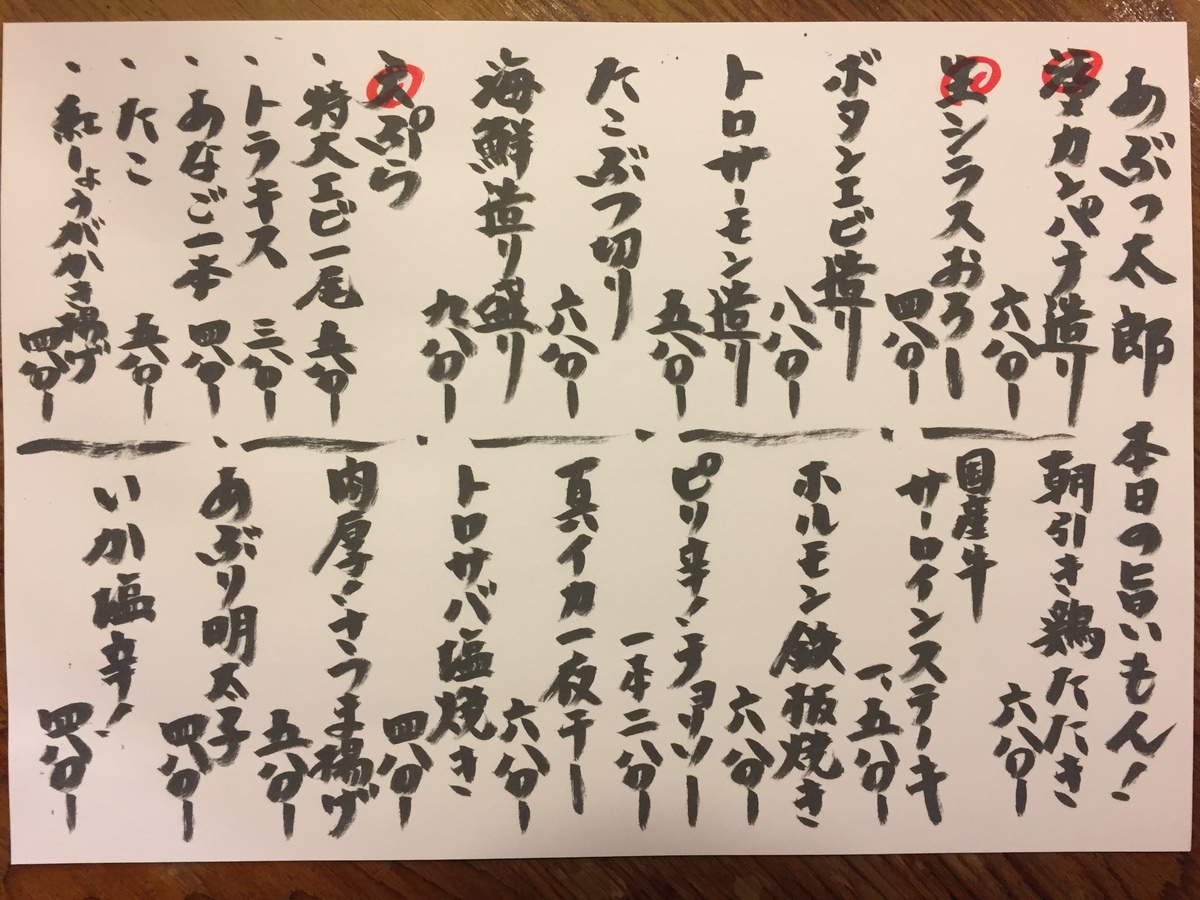 あぶっ太郎 本日の旨いもん！
活〆カンパチ造り
六八〇ー
生シラスおろし
四八〇ー
ボタンエビ造り
八八〇ー
トロサーモン造り
五八〇ー
たこぶつ切り
六八〇ー
海鮮造り盛り
九八〇ー
天ぷら
・特大エビ一尾 五八〇ー
・トラキス 三八〇ー
・あなご一本 四八〇ー
・たこ 五八〇ー
・紅しょうがかき揚げ
四八〇ー
朝引き鶏たたき
六八〇ー
国産牛
サーロインステーキ
一、五八〇ー
ホルモン鉄板焼き
六八〇ー
ピリ辛！チョリソー
一本二八〇ー
真イカ一夜干し
六八〇ー
トロサバ塩焼き
四八〇ー
肉厚！さつま揚げ
五八〇ー
・あぶり明太子
四八〇ー
いか塩辛！
四八〇ー